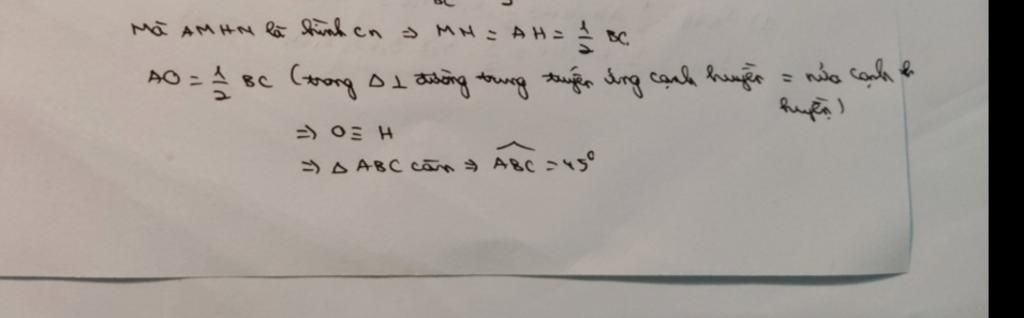 BC
Mà AMHN là hình cn ⇒ MN = AH = 1/2 BC
AO = 1/2 BC (trong Δ⊥ đường trung tuyến ứng cạnh huyền = nửa cạnh
huyền)
⇒ O ≡ H
⇒ Δ ABC cân ⇒ ABC = 45°